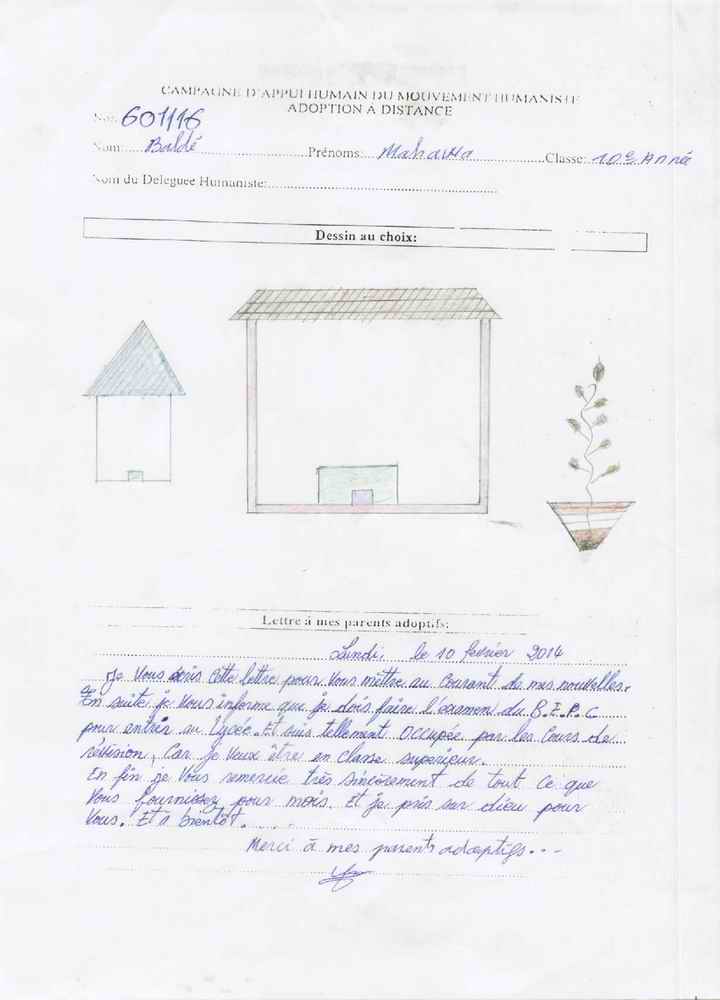 CAMPAGNE D'APPUI HUMAIN DU MOUVEMENT HUMANISTE
ADOPTION À DISTANCE
No: 601116
Nom: Baldé Prénoms: Classe: 10e Année
Nom du Deleguee Humaniste:
Dessin au choix:
Lettre à mes parents adoptifs:
Lundi, le 10 février 2014
Je Vous ecris cette lettre pour Vous mettre au courant de mes nouvelles.
En suite je Vous informe que je dois faire l'examen du B.E.P.C
pour entrir au Lycée. Et suis tellement Occupée par les Cours de
révision, Car je Veux être en classe superieur.
En fin je Vous remercie très sincèrement de tout ce que
Vous fournissez pour mois. Et je pris sur dieu pour
Vous. Et a bientôt.....
Merci à mes parents adoptifs...